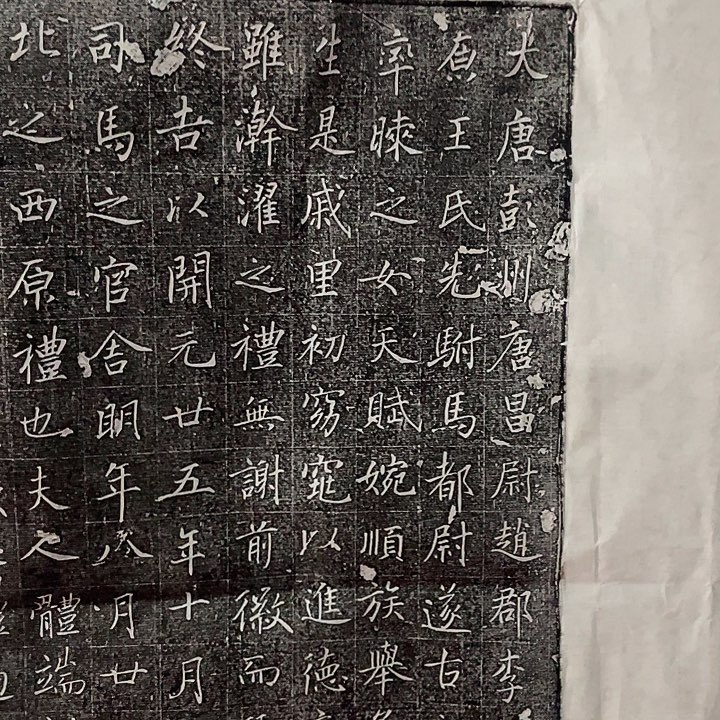 大唐彭州唐昌尉趙郡李
王氏先駙馬都尉遂古
率睞之女天賦婉順族舉
生是戚里初窈窕以進德
雖澣濯之禮無謝前徽而
終吉以開元廿五年十月
司馬之官舍明年八月廿
北之西原禮也夫人體端